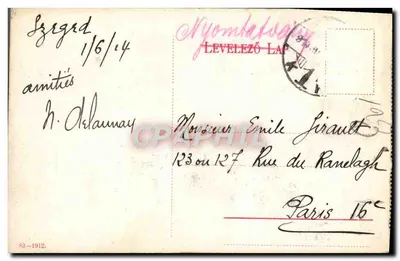 Szeged
1/6/14
amitiés
N. Delaunay
Nyomtatvány
LEVELEZŐ LAP
Monsieur Emile Girault
123 ou 127 Rue du Ranelagh
Paris 16e
CPAPHIL
83.-1912.